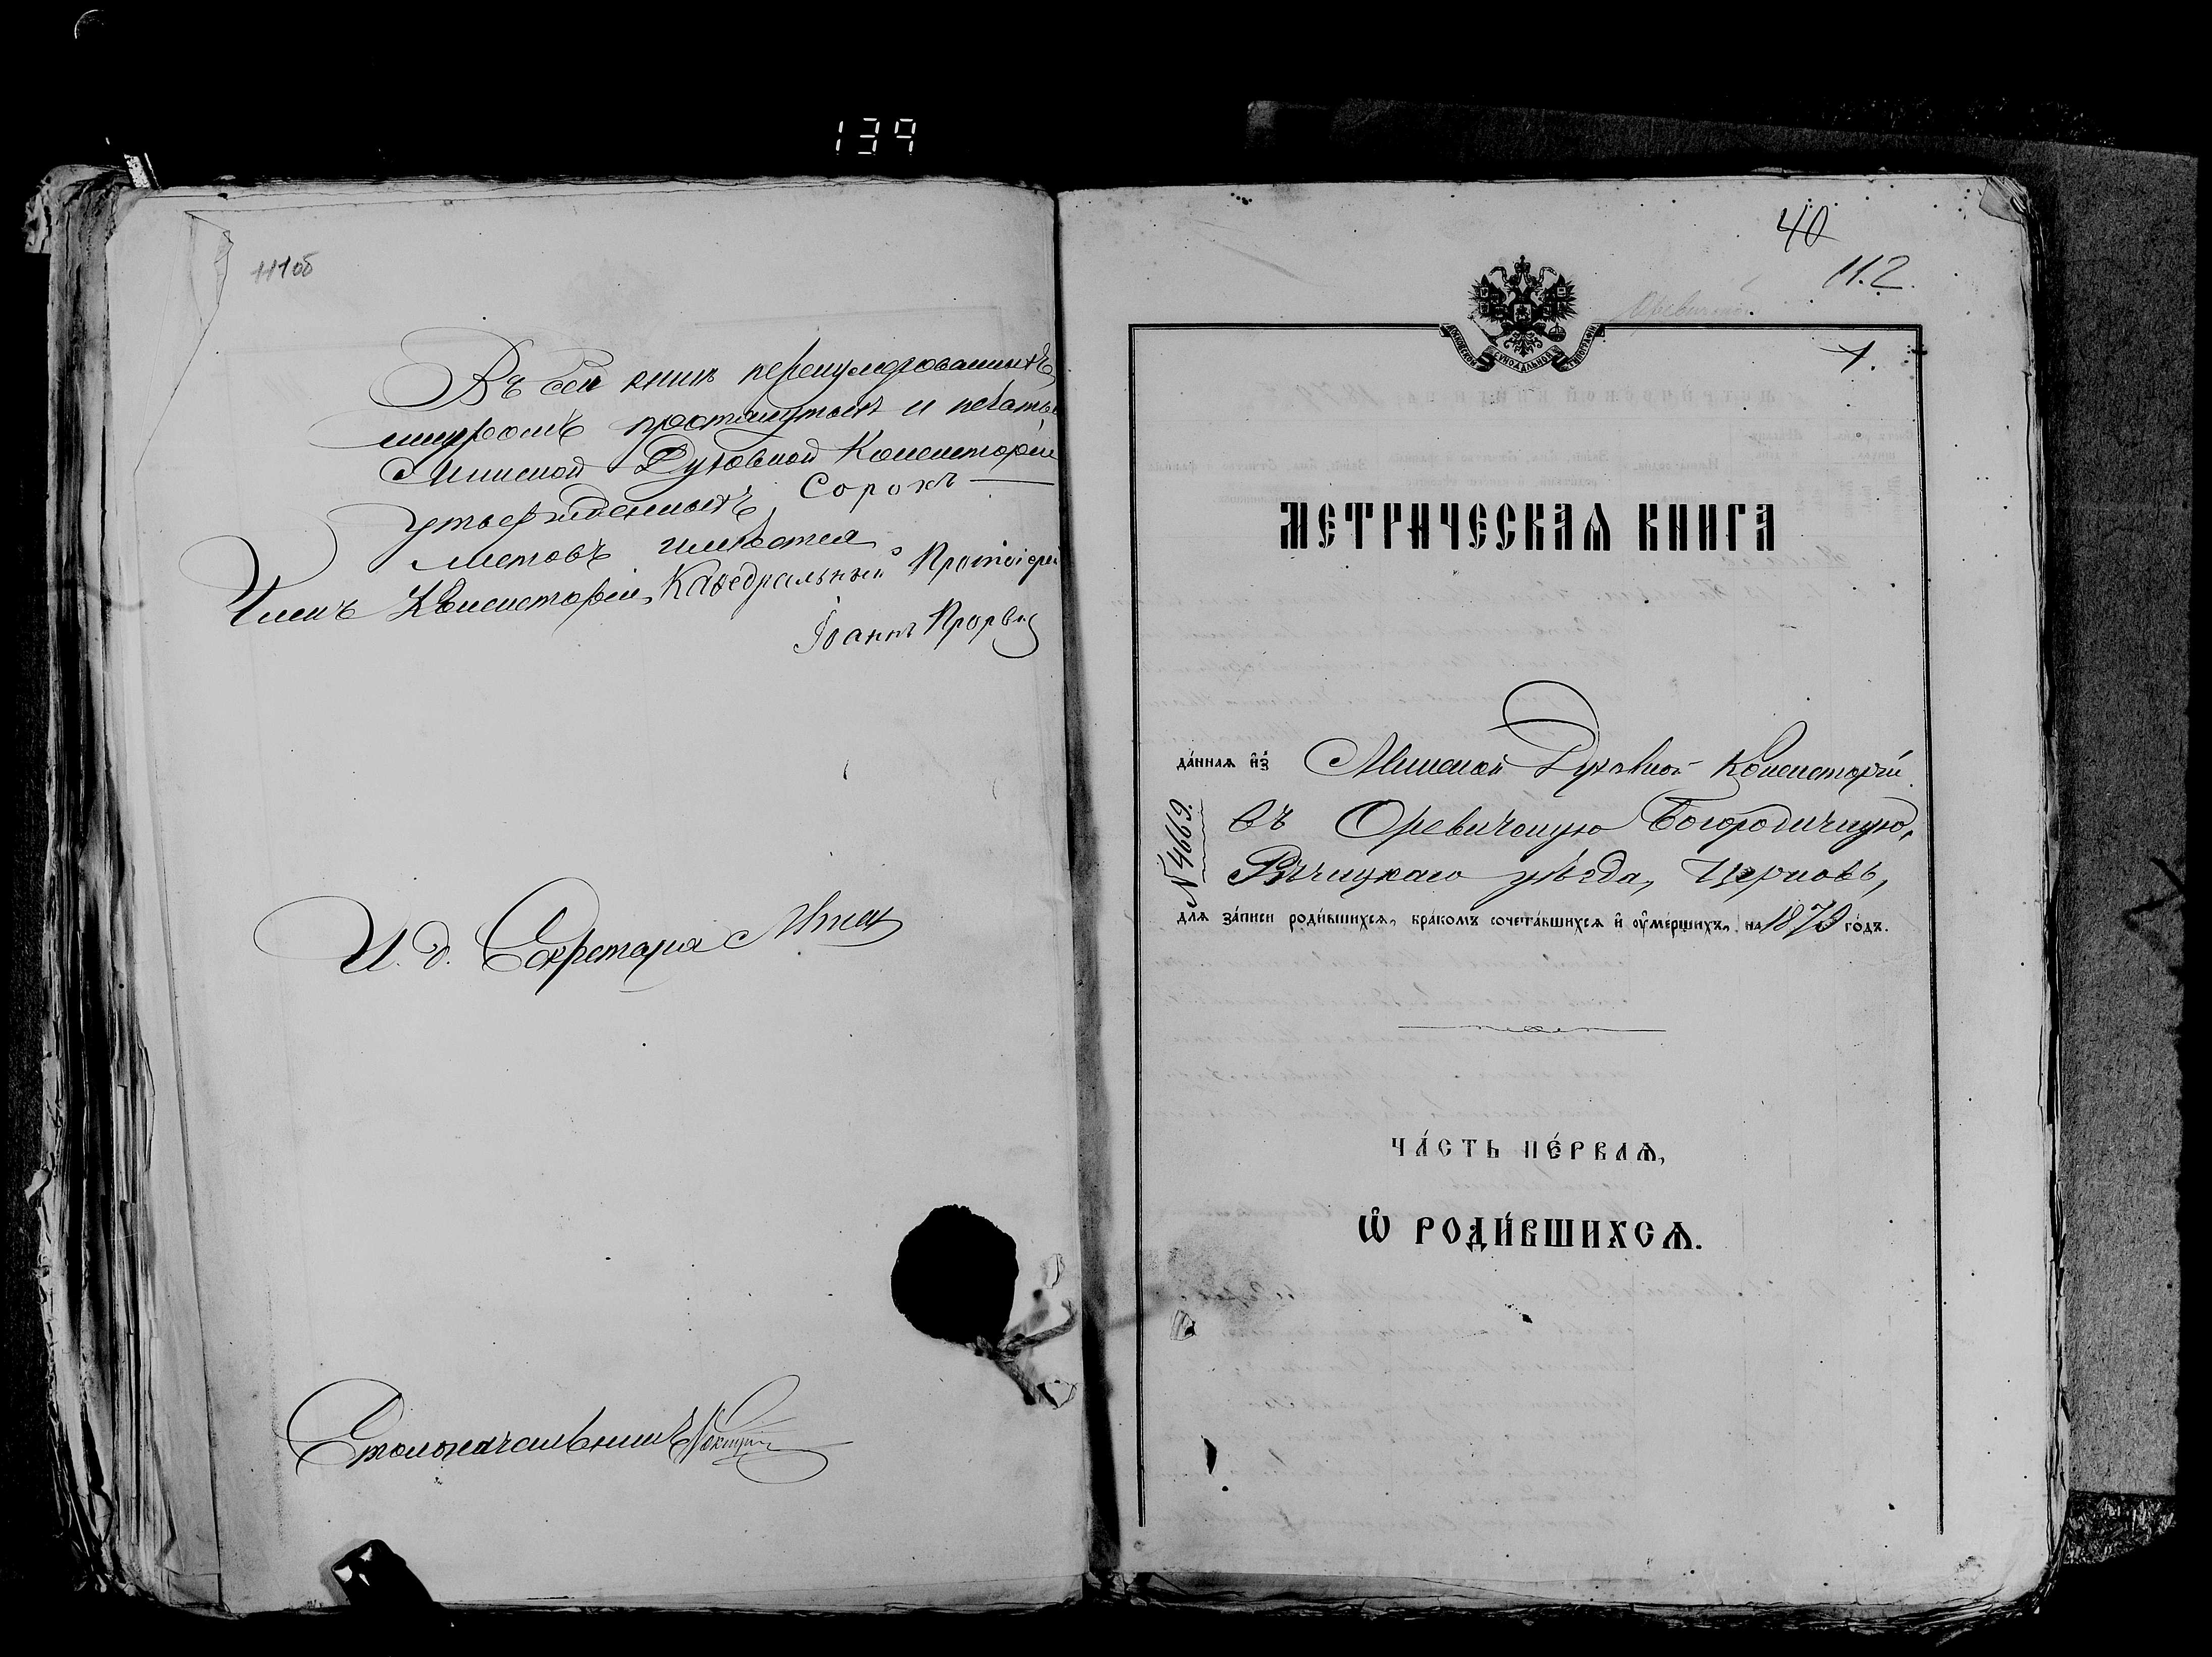 139
111об
Въ сей книгѣ перенумерованныхъ,
шнуромъ протянутыхъ и печатью
Минской Духовной Консисторіи
утвержденныхъ, Сорокъ
листовъ имѣется
Членъ Консисторіи, Каѳедральный Протоіерей
Іоаннъ
И. д. Секретаря
Столоначальникъ
40
112.
1.
МОСКОВСКОЙ СѴНОДАЛЬНОЙ ТИПОГРАФІИ
МЕТРИЧЕСКАѦ КНИГА
да́ннаѧ и҆з̾ Минской Духовной Консисторіи
въ Оревичскую Богородичную,
Рѣчицкаго уѣзда, Церковь,
№ 4669.
длѧ за́писи роди́вшихсѧ, бра́комъ сочета́вшихсѧ и҆ ᲂу҆ме́ршихъ, на 1879 го́дъ.
ЧА́СТЬ ПЕ́РВАѦ,
Ѡ҆ РОДИ́ВШИХСѦ.